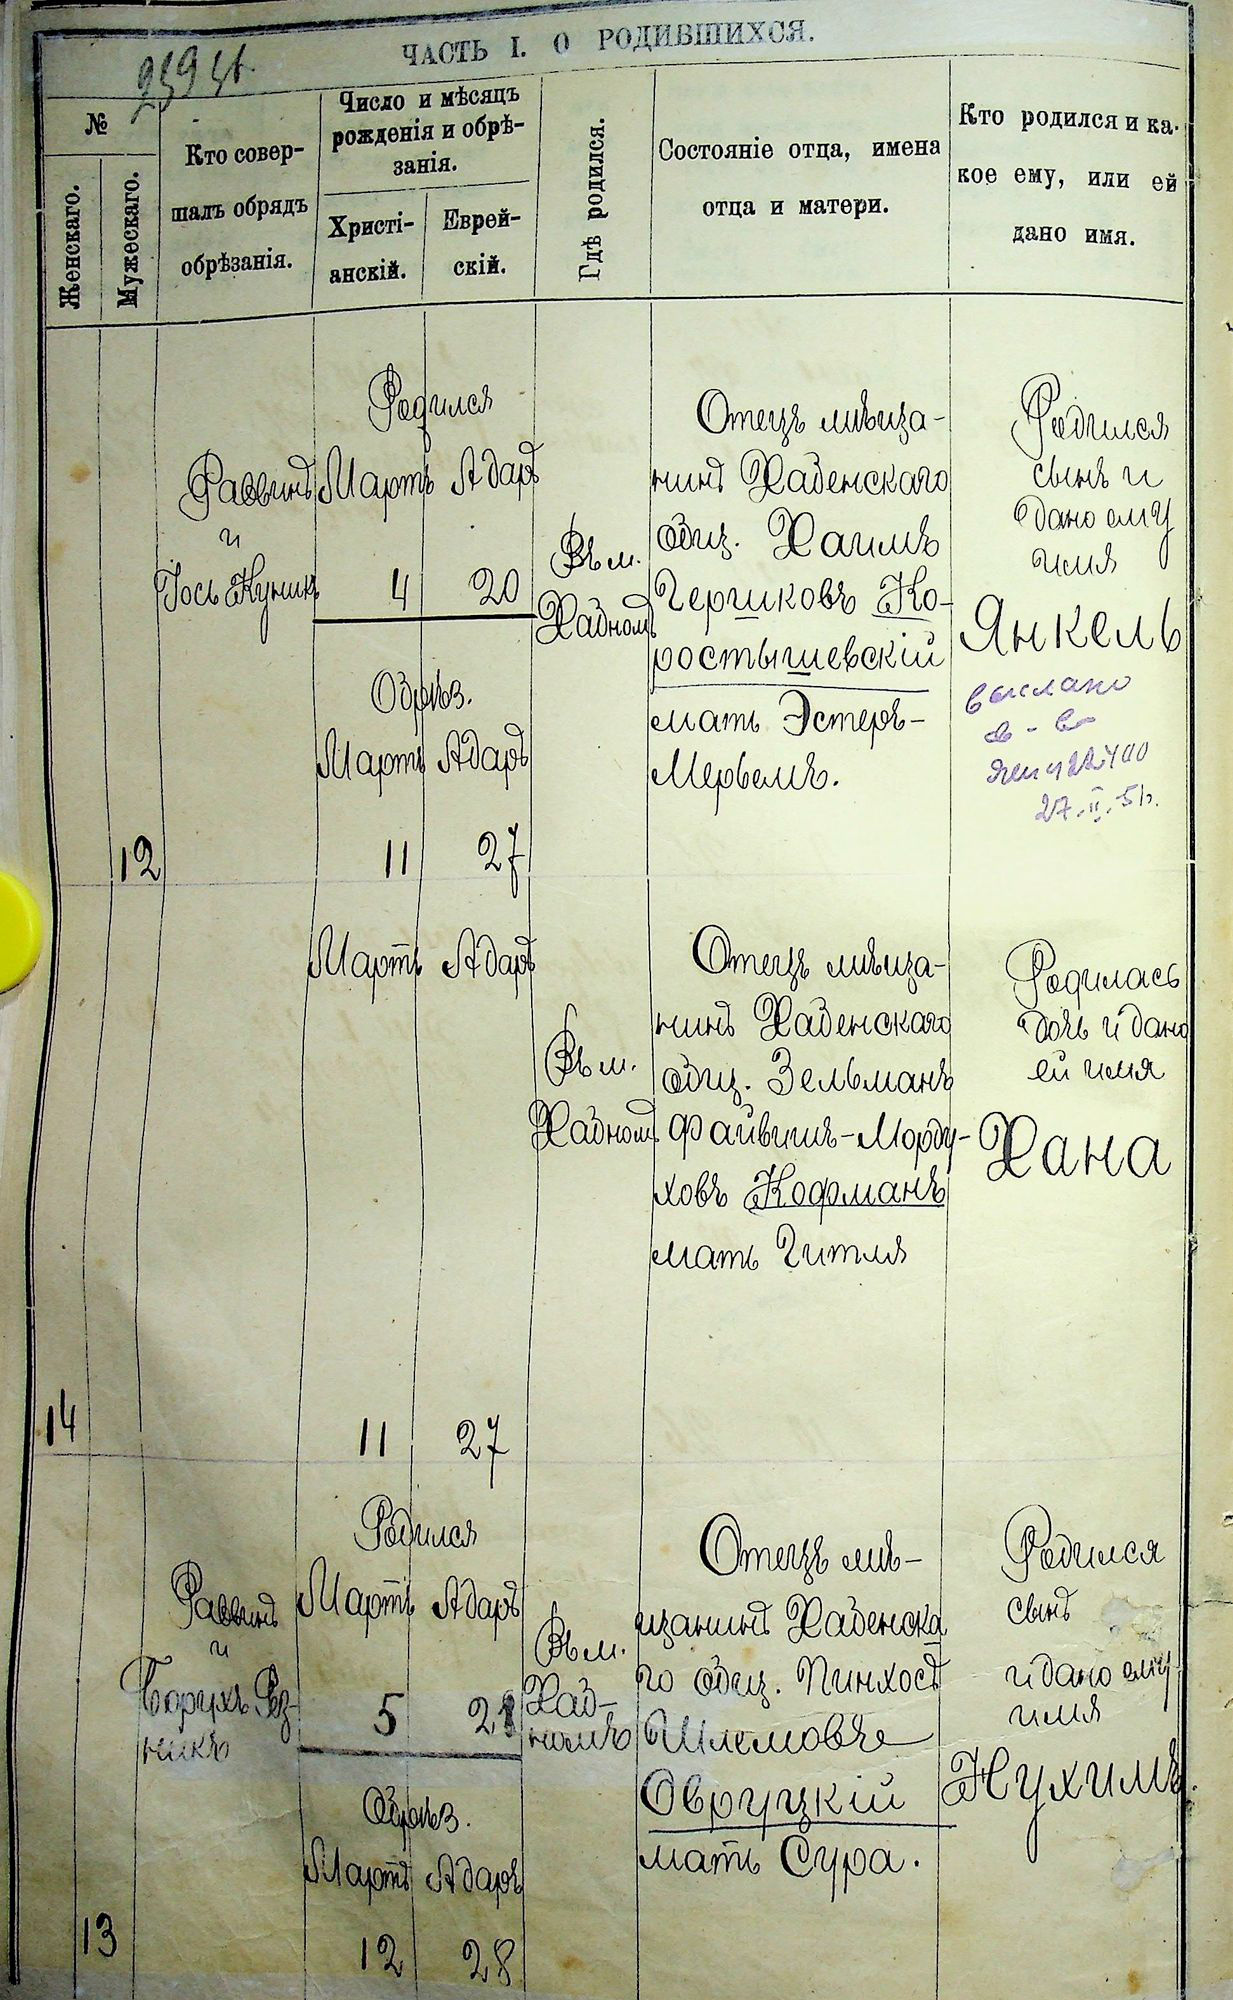 ЧАСТЬ I. О РОДИВШИХСЯ.
№
Женскаго.
Мужескаго.
Кто совер-
шалъ обрядъ
обрѣзанія.
Число и мѣсяцъ
рожденія и обрѣ-
занія.
Христі-
анскій.
Еврей-
скій.
Гдѣ родился.
Состояніе отца, имена
отца и матери.
Кто родился и ка-
кое ему, или ей
дано имя.
12
Раввинъ
и
Іось Куникъ
Родился
Мартъ Адаръ
4 20
Обрѣз.
Мартъ Адаръ
11 27
Въ м.
Хабномъ
Отецъ мѣща-
нинъ Хабенскаго
общ. Хаимъ
Гершковъ Ко-
ростышевскій
мать Эстеръ-
Мерьемъ.
Родился
сынъ и
дано ему
имя
Янкель
выслано
27.II.51г.
14
Мартъ Адаръ
11 27
Въ м.
Хабномъ
Отецъ мѣща-
нинъ Хабенскаго
общ. Зельманъ
Файвишъ-Морду-
ховъ Кофманъ
мать Гитля
Родилась
дочь и дано
ей имя
Хана
13
Раввинъ
и
Борухъ Рѣз-
никъ
Родился
Мартъ Адаръ
5 21
Обрѣз.
Мартъ Адаръ
12 28
Въ м.
Хаб-
номъ
Отецъ мѣ-
щанинъ Хабенска
го общ. Пинхосъ
Шлемовъ
Овруцкій
мать Сура.
Родился
сынъ
и дано ему
имя
Нухимъ.